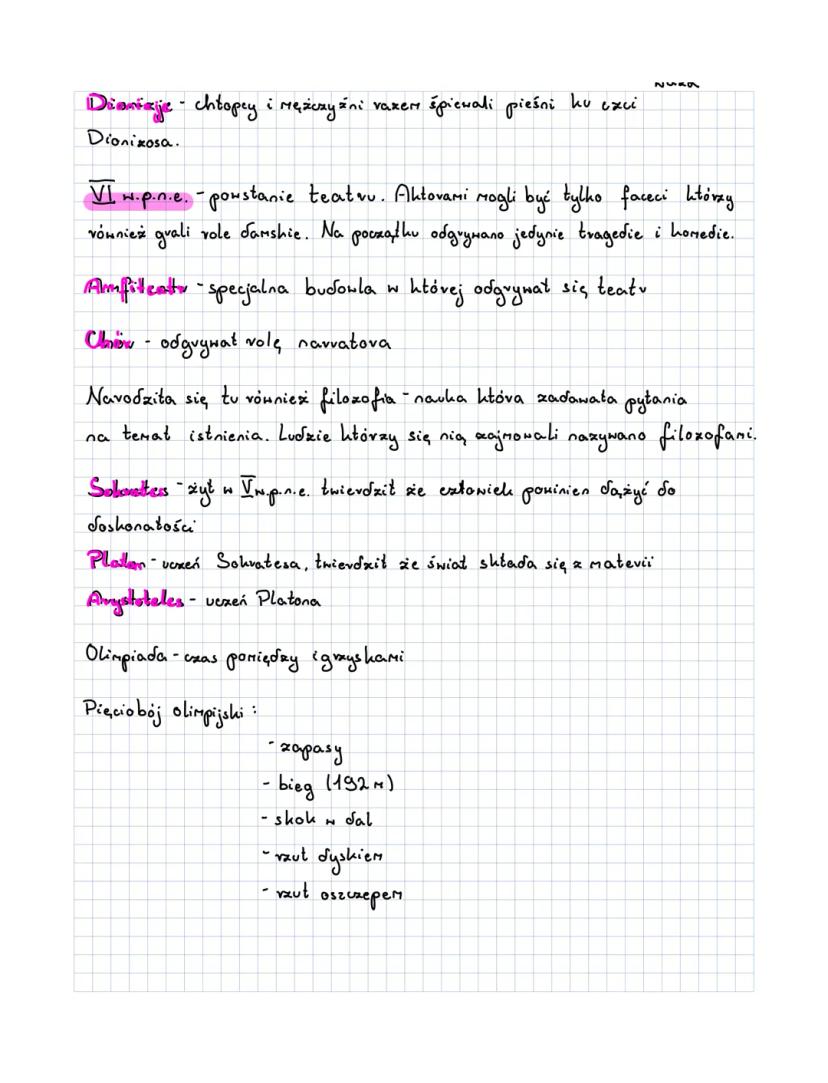 Dionizje - chłopcy i mężczyźni razem śpiewali pieśni ku czci
Dionizosa.
VI w.p.n.e. - powstanie teatru. Aktorami mogli być tylko faceci którzy
również grali role damskie. Na początku odgrywano jedynie tragedie i komedie.
Amfiteatr - specjalna budowla w której odgrywał się teatr
Chór - odgrywał rolę narratora
Narodziła się tu również filozofia - nauka która zadawała pytania
na temat istnienia. Ludzie którzy się nią zajmowali nazywano filozofami.
Sokrates - żył w V w.p.n.e. twierdził że człowiek powinien dążyć do
doskonałości
Platon - uczeń Sokratesa, twierdził że świat składa się z materii
Arystoteles - uczeń Platona
Olimpiada - czas pomiędzy igrzyskami
Pięciobój olimpijski :
- zapasy
- bieg (192 m)
- skok w dal
- rzut dyskiem
- rzut oszczepem